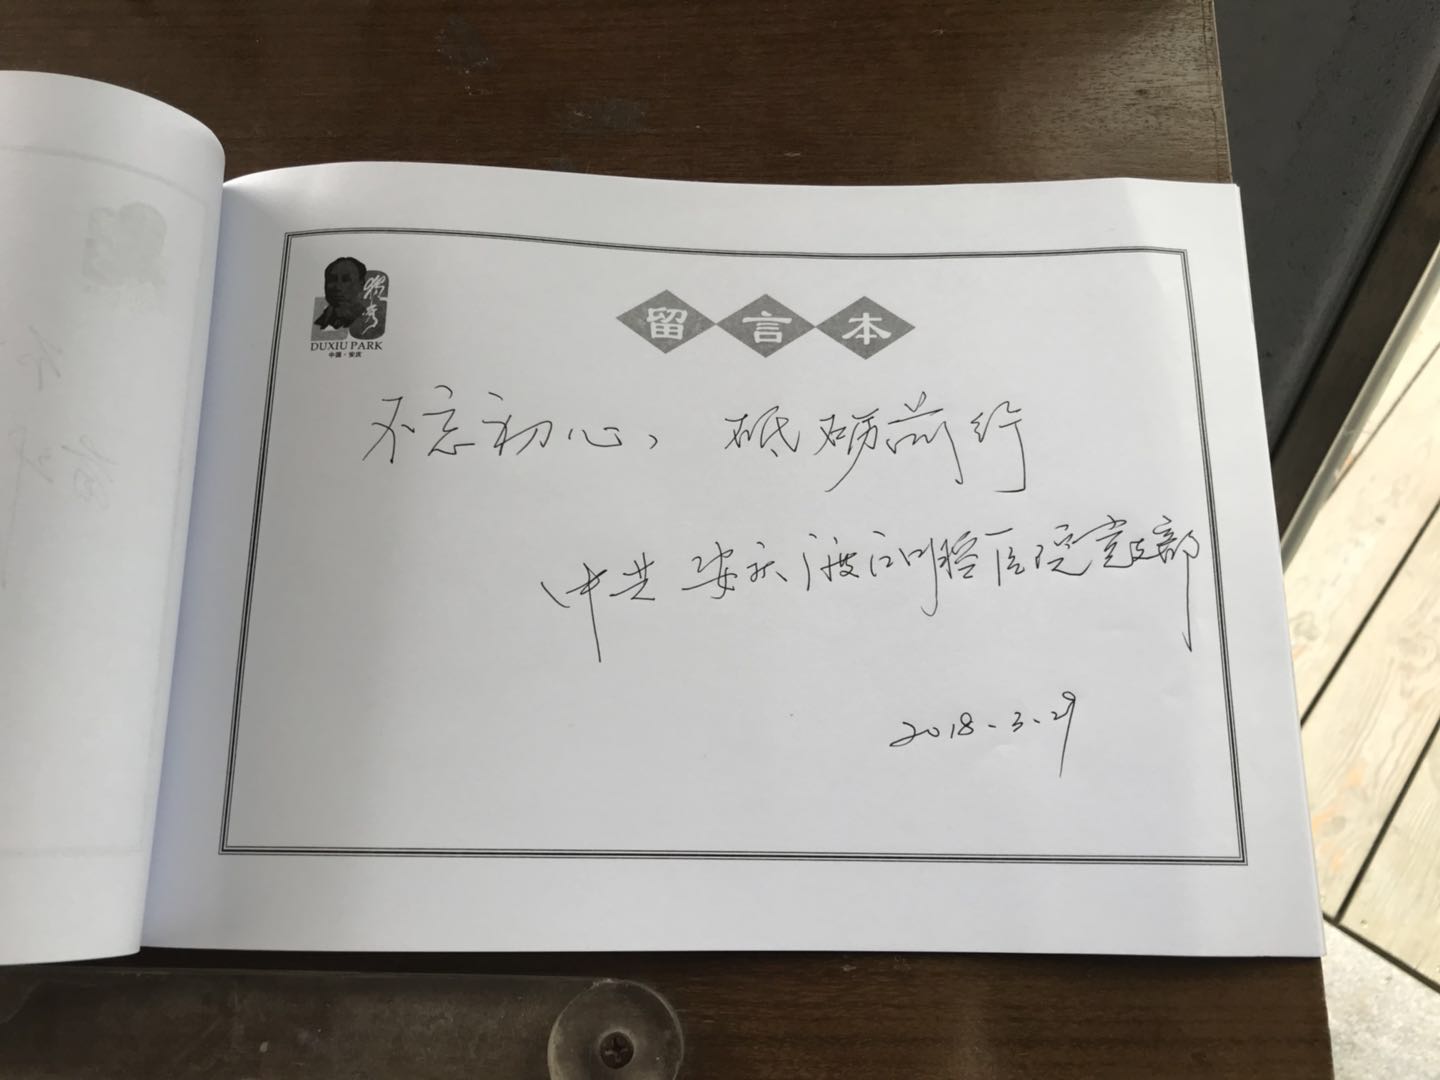 独秀
DUXIU PARK
中国·安庆
留言本
不忘初心，砥砺前行
中共安庆渡江口腔医院党支部
2018.3.29